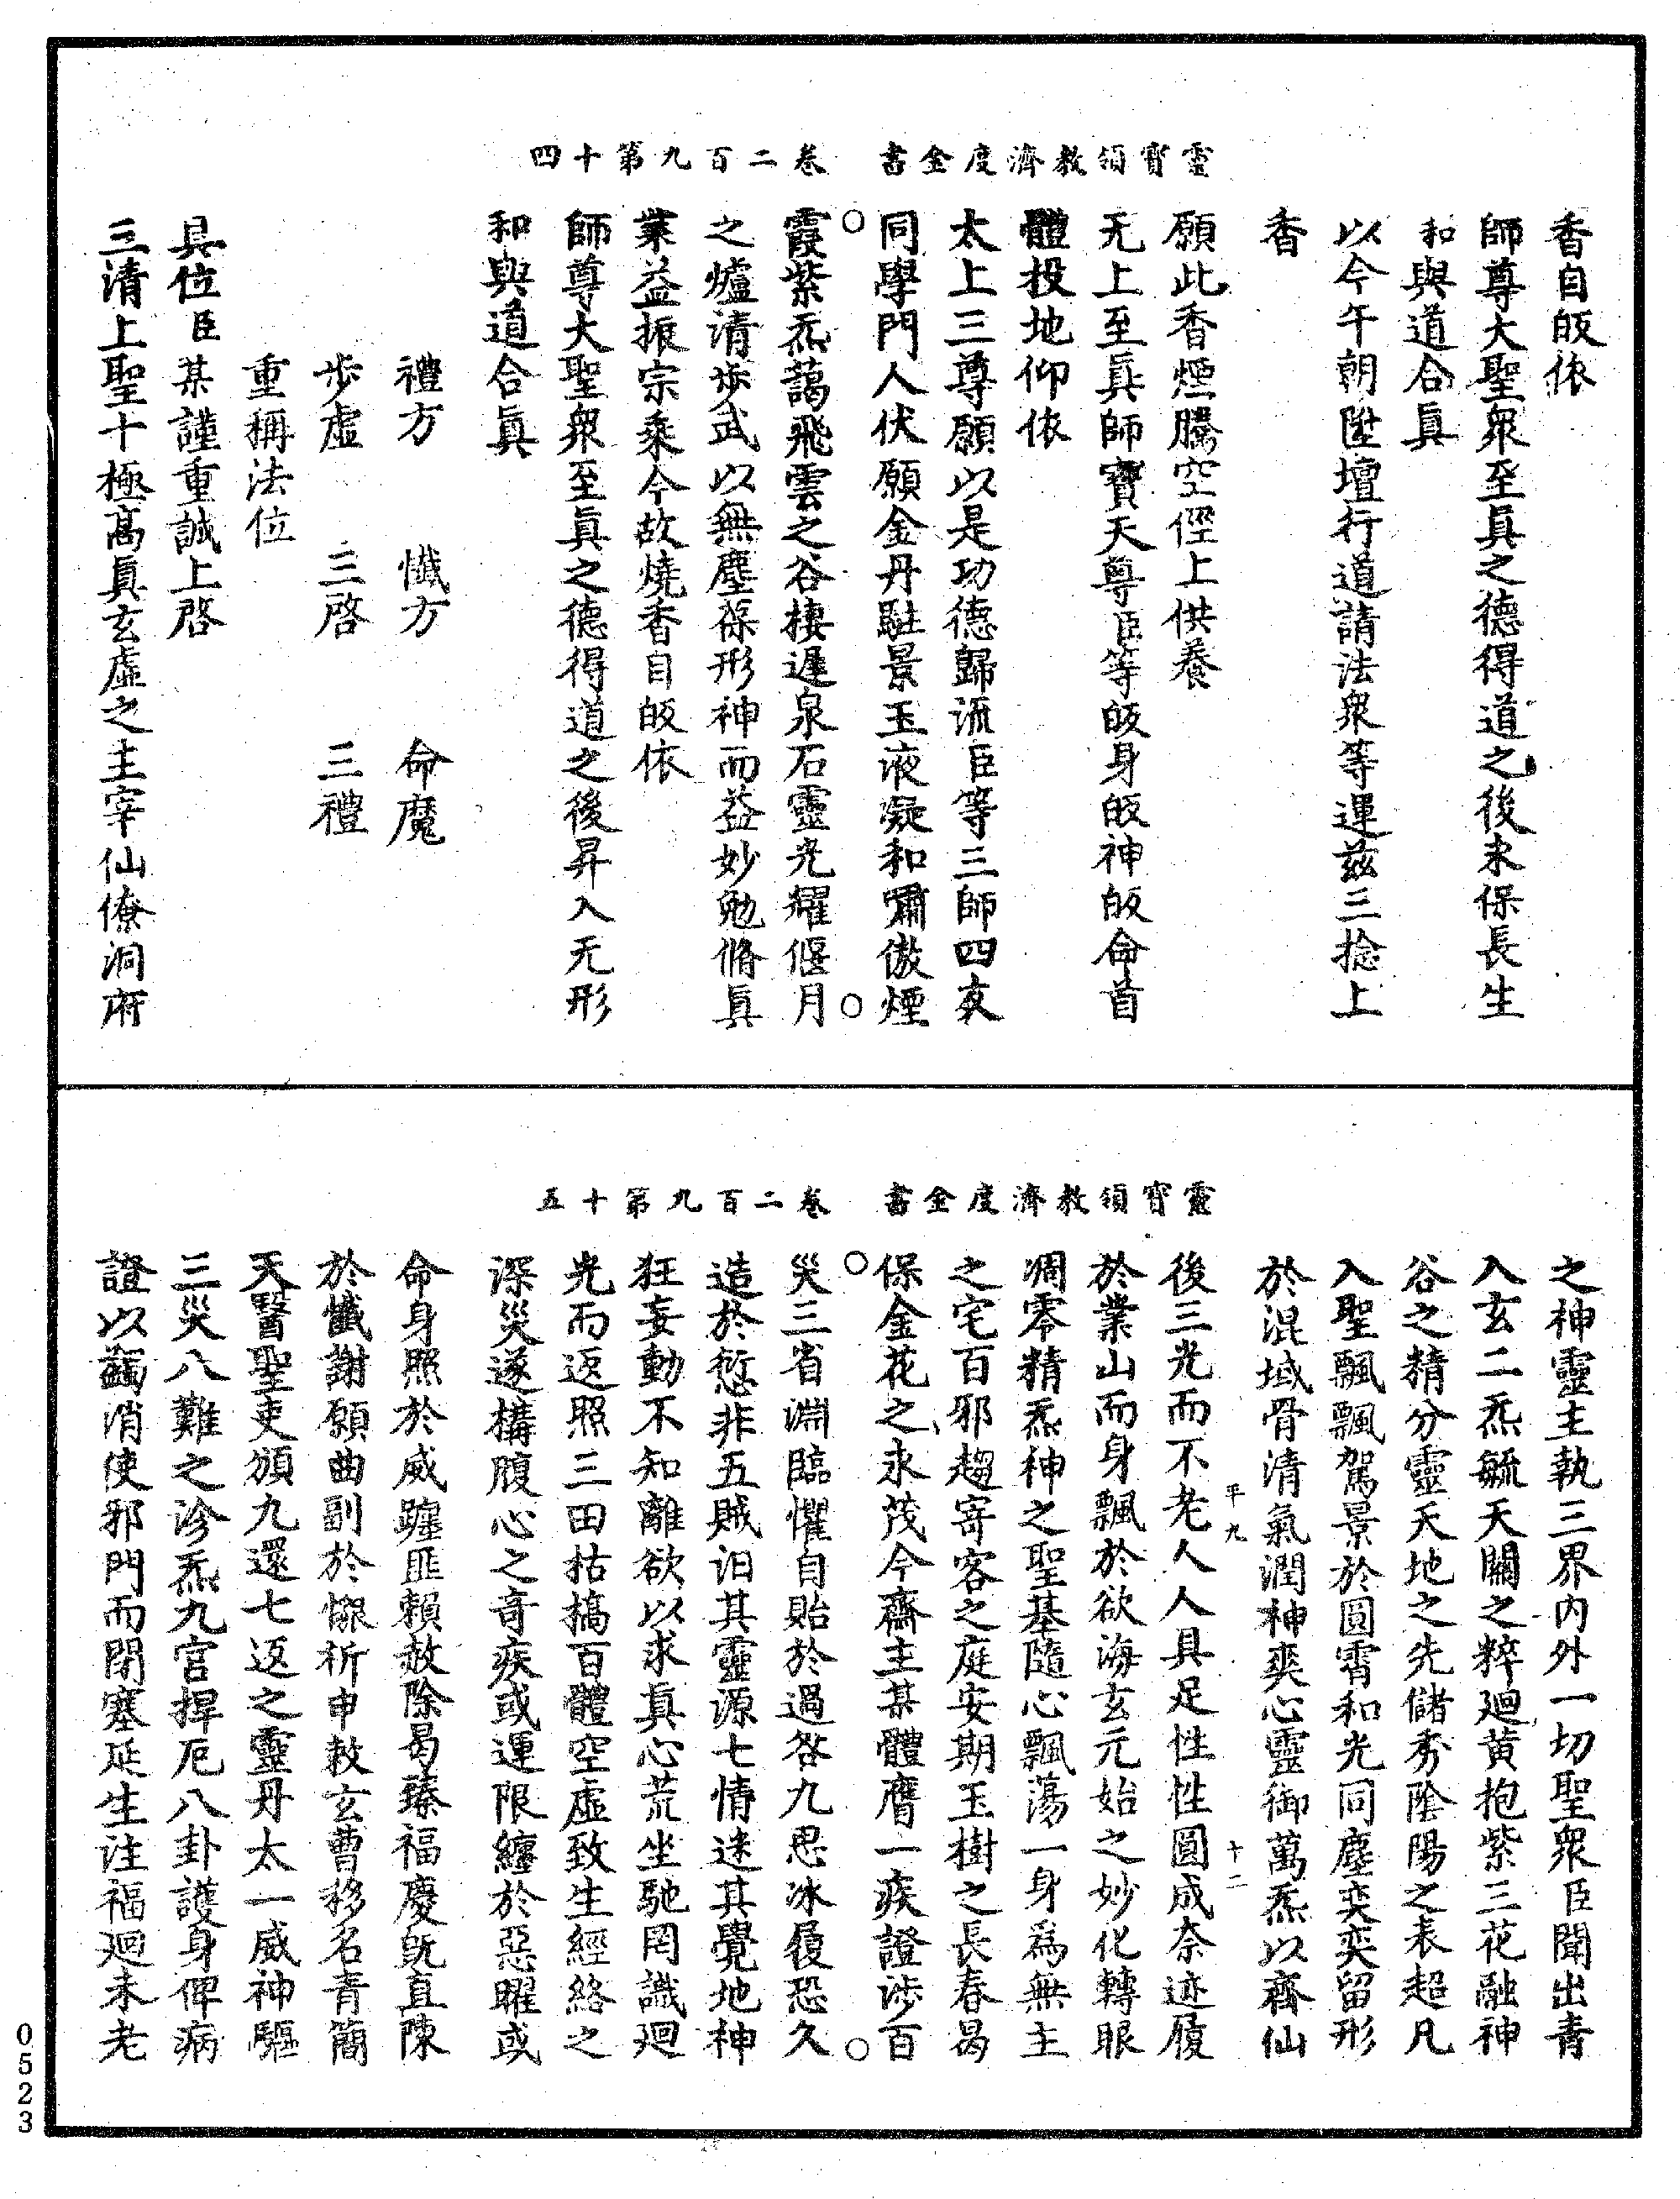 靈寶領教濟度金書　卷二百九第十四
香自皈依
師尊大聖衆至眞之德得道之後永保長生
和與道合眞
以今午朝陞壇行道請法衆等運茲三捻上
香
願此香煙騰空徑上供養
无上至眞師寶天尊臣等皈身皈神皈命首
體投地仰依
太上三尊願以是功德歸流臣等三師四友
同學門人伏願金丹駐景玉液凝和嘯傲煙
霞紫炁藹飛雲之谷棲遲泉石靈光耀偃月
之爐清步武以無塵葆形神而益妙勉脩眞
業益振宗乘今故燒香自皈依
師尊大聖衆至眞之德得道之後昇入无形
和與道合眞
禮方　懺方　命魔
步虛　三啓　三禮
重稱法位
具位臣某謹重誠上啓
三清上聖十極高眞玄虛之主宰仙僚洞府
靈寶領教濟度金書　卷二百九第十五
之神靈主執三界内外一切聖衆臣聞出青
入玄二炁毓天關之粹廻黄抱紫三花融神
谷之精分靈天地之先儲秀陰陽之表超凡
入聖飄飄駕景於圓霄和光同塵奕奕留形
於混域骨清氣潤神爽心靈御萬炁以齊仙
平九　十二
後三光而不老人人具足性性圓成奈迹履
於業山而身飄於欲海玄元始之妙化轉眼
凋零精炁神之聖基隨心飄蕩一身爲無主
之宅百邪趨寄客之庭安期玉樹之長春曷
保金花之永茂今齋主某體膺一疾證涉百
災三省淵臨懼自貽於過咎九思冰履恐久
造於愆非五賊汩其靈源七情迷其覺地神
狂妄動不知離欲以求眞心荒坐馳罔識廻
光而返照三田枯槁百體空虛致生經絡之
深災遂構腹心之奇疾或運限纏於惡曜或
命身照於威躔匪賴赦除曷臻福慶旣直陳
於懺謝願曲副於懇祈申敕玄曹移名青簡
天醫聖吏頒九還七返之靈丹太一威神驅
三災八難之沴炁九宮捍厄八卦護身俾病
證以蠲消使邪門而閉塞延生注福廻未老
0523